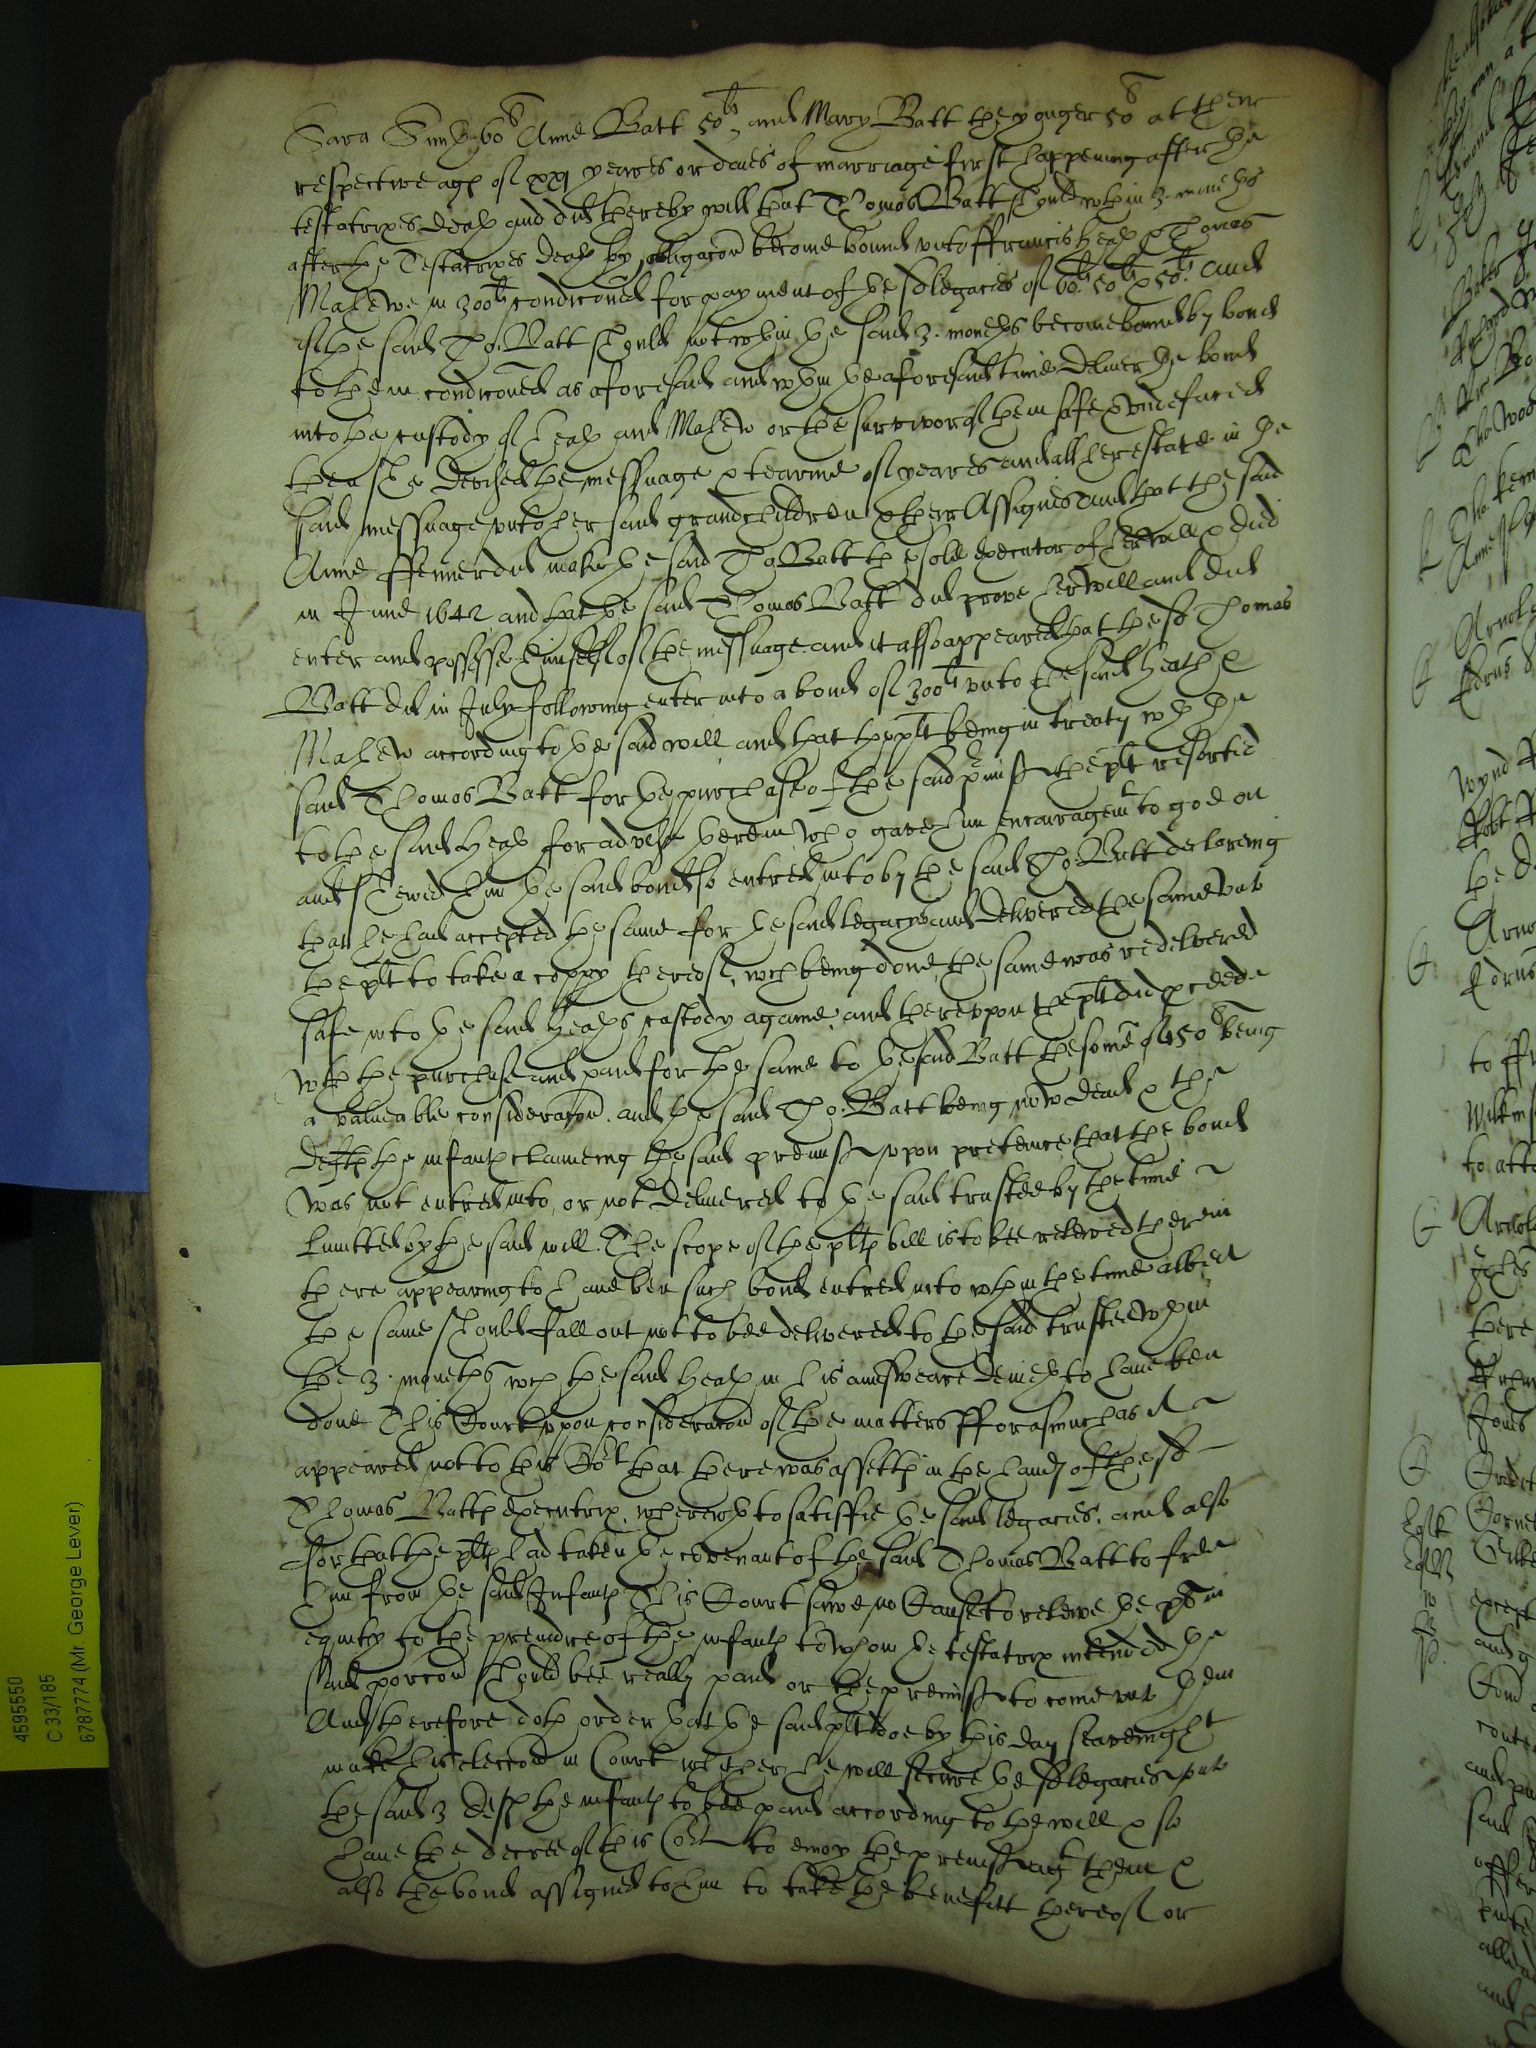 Sara Smyth 60li Anne Batt 50li and Mary Batt the younger 50li at their
respective ages of xxi yeares or daies of marriage first happening after the
testatrixes death and did thereby will that Thomas Batt should wthin 3. moneths
after the Testatrixes death by obligacon become bound unto ffrancis Heath & Thomas
Mathewe in 300li condiconed for payment of the sd legacies of 60li 50li & 50li. And
if the said Tho: Batt should not wthin the said 3. moneths become bound by bond
to them condiconed as aforesaid and wthin the aforesaid time deliver the bond
into the custody of Heath and Mathew or the survivor of them safe & undefaced
then she devised the messuage & tearme of yeares and all her estate in the
said messuage unto her said grandchildren & their Assignes and that the said
Anne ffenner did make the said Tho Batt the sole executor of her will & died
in June 1642 and that the said Thomas Batt did prove her will and did
enter and possesse himselfe of the messuage and it also appeared that the sd Thomas
Batt did in July following enter into a bond of 300li unto the said Heath &
Mathew according to the said will and that the plt being in treaty wth the
said Thomas Batt for the purchase of the said p'miss the plt resorted
to the said Heath for advise therein who gave him encouragemt to goe on
and shewed him the said bond so entred into by the said Tho: Batt declareing
that he had accepted the same for the said legacyes and delivered the same unto
the plt to take a coppy thereof, wch being done the same was redelivered
safe into the said Heaths custody againe, and thereupon the plt did p'ceede
wth the purchase and paid for the same to the said Batt the some of 450li being
a valuable consideracon. and the said Tho: Batt being now dead & the
defts the infants claimeing the said premiss upon pretence that the bond
was not entred into, or not delivered to the said trustees by the time
limitted by the said will. The scope of the plts bill is to bee releived therein
there appearing to have ben such bond entred into wthin the time albeit
the same should fall out not to bee delivered to the said trustees wthin
the 3. moneths wch the said Heath in his answeare denieth to have ben
done This Court upon consideracon of the matters fforasmuch as it
appeared not to this Cort that there was assetts in the hands of the sd
Thomas Batts executrix, wherewth to satisfie the said legacies. and also
for that the plts had taken the covenant of the said Thomas Batt to free
him from the said Infants This Court sawe no Cause to releive the plt in
equity to the prejudice of the infants to whom the testatrix intended the
said porcons should bee really paid or the premiss to come unto them
And therefore doth order that the said plt doe by this day seavenight
make his eleccon in Court whether he will secure the sd legacies unto
the said 3 defts the infants to bee paid according to the will & so
have the decree of this Cort to enioy the premiss agt them &
also the bond assigned to him to take the benefitt thereof or
4595550
C 33/185
6787774 (Mr. George Lever)